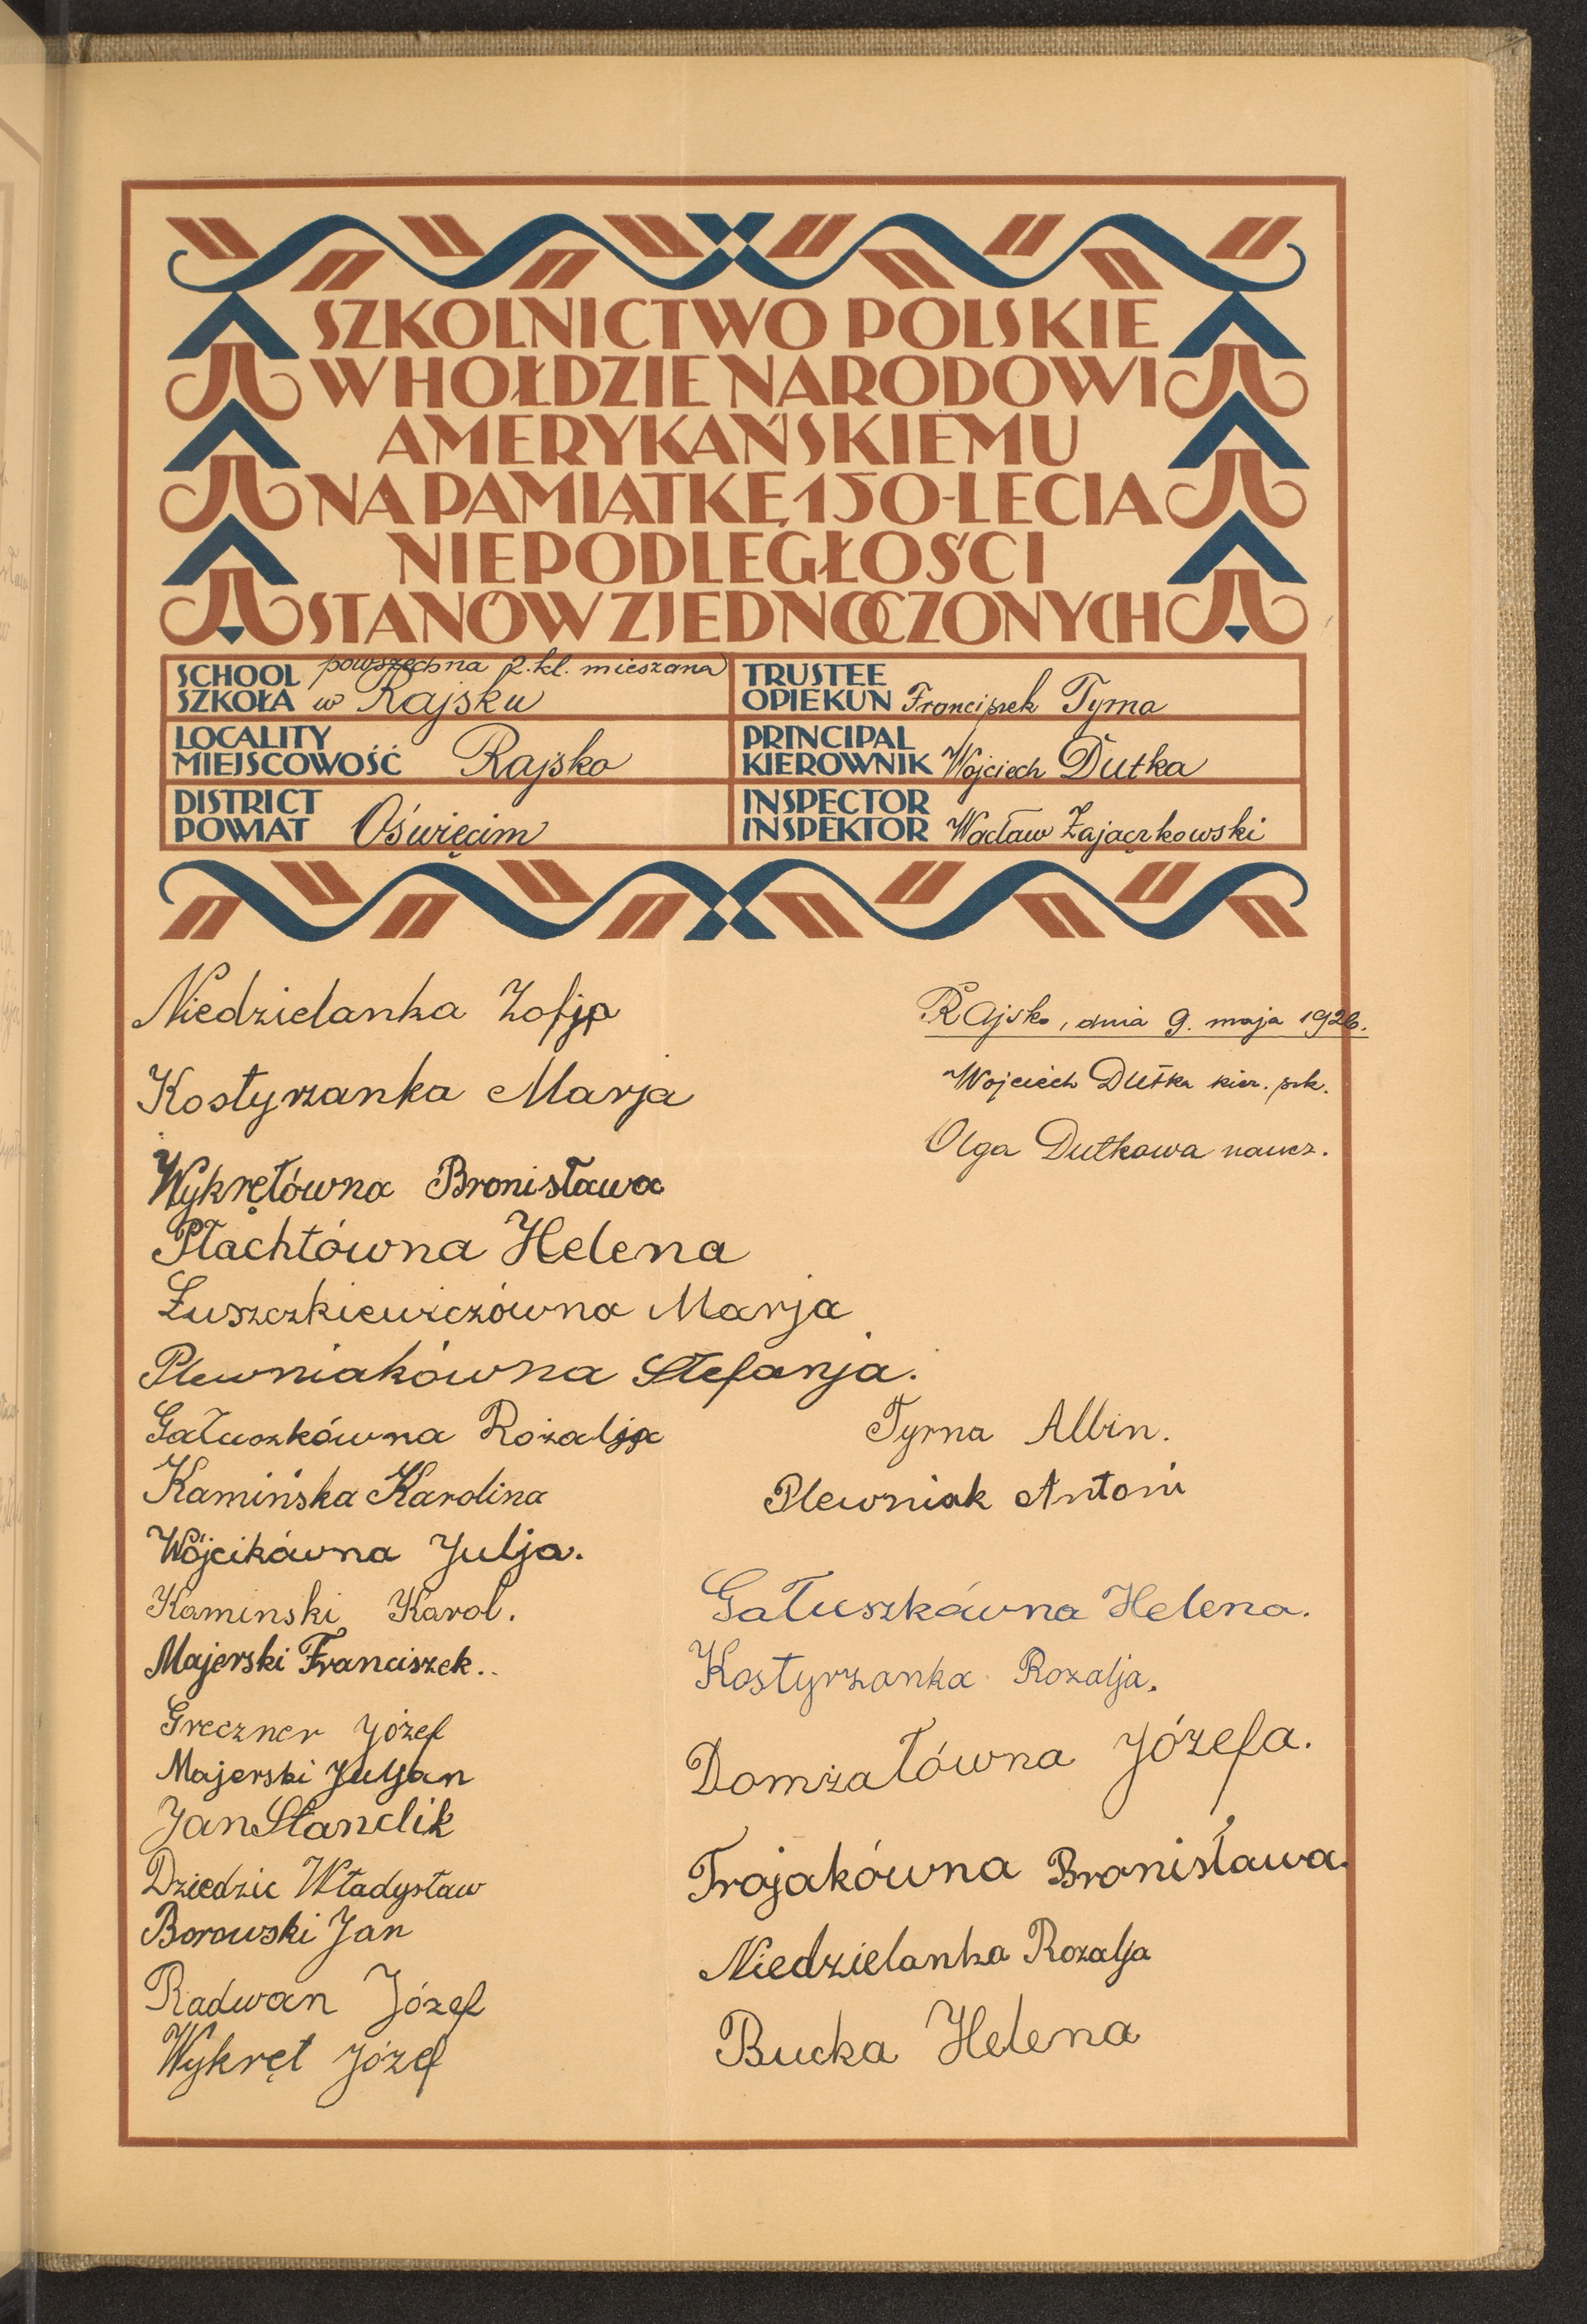 SZKOLNICTWO POLSKIE
W HOŁDZIE NARODOWI
AMERYKAŃSKIEMU
NA PAMIĄTKĘ 150-LECIA
NIEPODLEGŁOŚCI
STANÓW ZJEDNOCZONYCH
SCHOOL powszechna 2. kl. mieszana
SZKOŁA w Rajsku
TRUSTEE
OPIEKUN Franciszek Tyrna
LOCALITY
MIEJSCOWOŚĆ Rajsko
PRINCIPAL
KIEROWNIK Wojciech Dutka
DISTRICT
POWIAT Oświęcim
INSPECTOR
INSPEKTOR Wacław Zajączkowski
Niedzielanka Zofja
Kostyrzanka Marja
Wykrętówna Bronisława
Płachtówna Helena
Łuszczkiewiczówna Marja
Plewniakówna Stefanja.
Gałuszkówna Rozalja
Kamińska Karolina
Wójcikówna Julja.
Kaminski Karol.
Majerski Franciszek..
Greczner Józef
Majerski Juljan
Jan Stanclik
Dziedzic Władysław
Borowski Jan
Radwan Józef
Wykręt Józef
Rajsko, dnia 9. maja 1926.
Wojciech Dutka kier. szk.
Olga Dutkowa naucz.
Tyrna Albin.
Plewniak Antoni
Gałuszkówna Helena.
Kostyrzanka Rozalja.
Domżałówna Józefa.
Trojakówna Bronisława.
Niedzielanka Rozalja
Bucka Helena